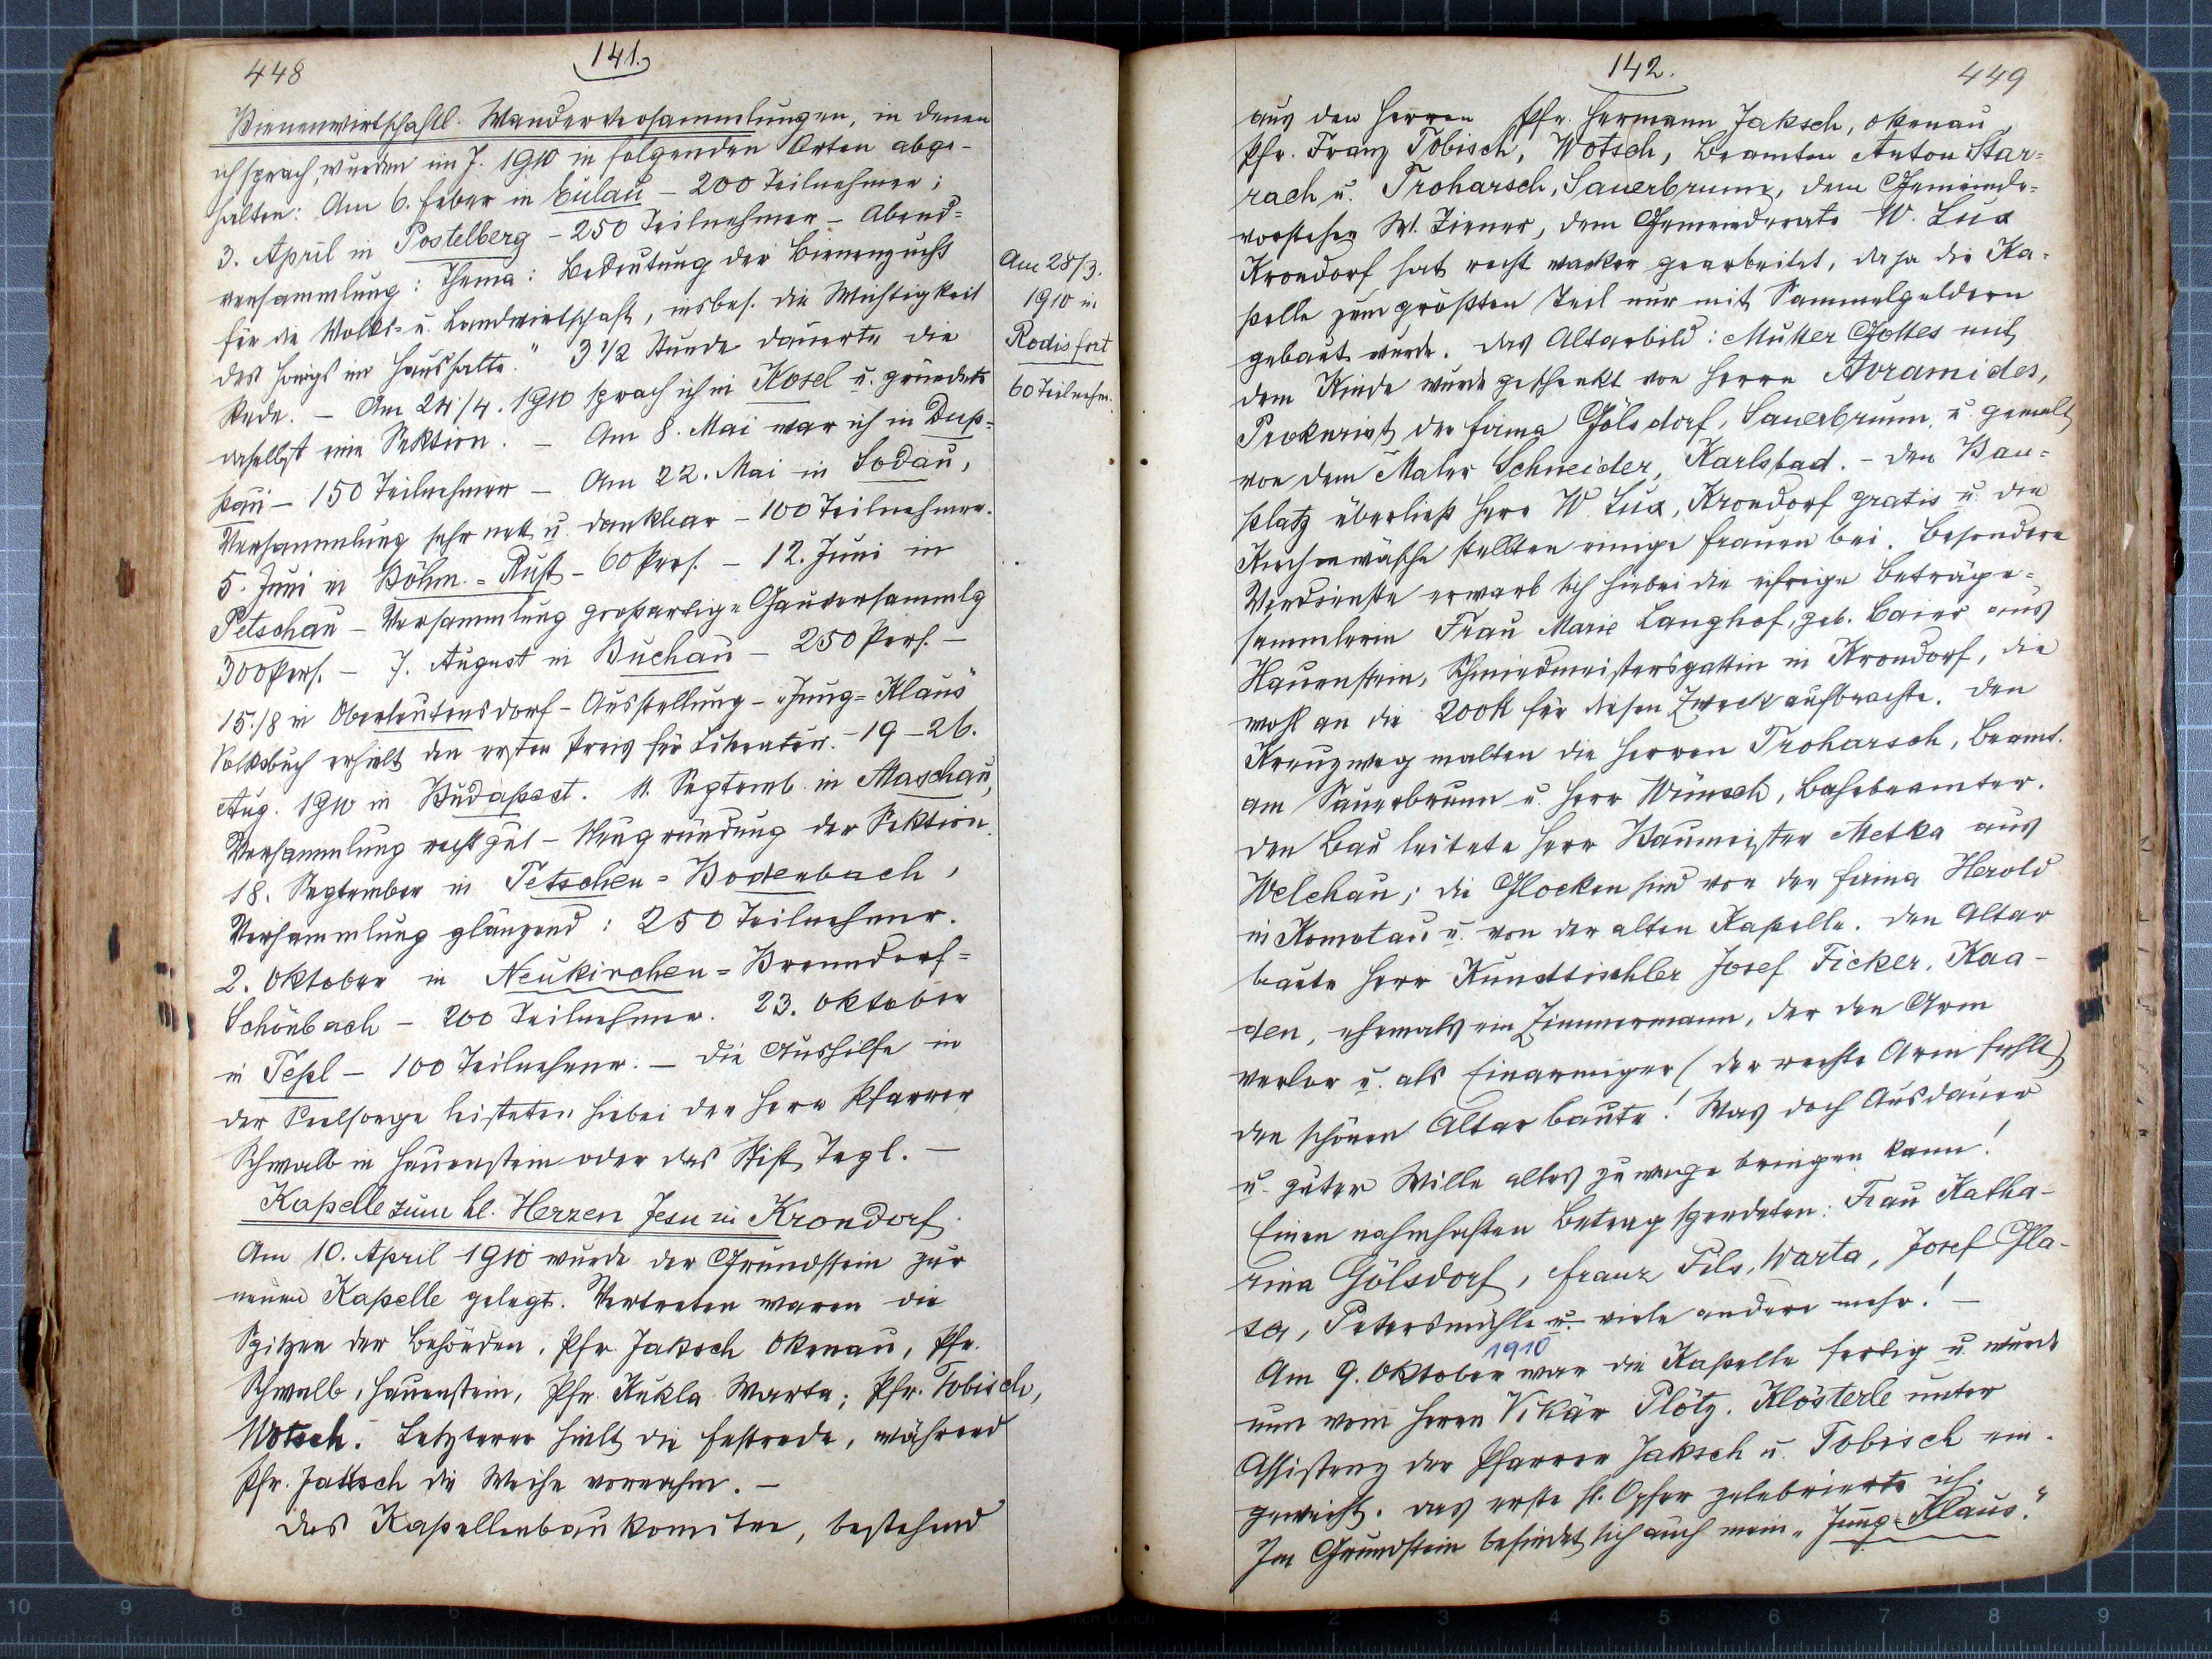 448
141.
Bienenwirtschaftl. Wanderversammlungen, in denen
ich sprach, wurden im J. 1910 in folgenden Orten abge-
halten: Am 6. Feber in Eulau – 200 Teilnehmer;
3. April in Postelberg – 250 Teilnehmer – Abend-
versammlung: Thema: Bedeutung der Bienenzucht
für die Volks- u. Landwirtschaft, insbes. die Wichtigkeit
des Honigs im Haushalte." 3 1/2 Stunde dauerte die
Rede. – Am 24/4. 1910 sprach ich in Kosel u. gründete
daselbst eine Sektion. – Am 8. Mai war ich in Dup-
pau – 150 Teilnehmer – Am 22. Mai in Sodau,
Versammlung sehr nett u. dankbar – 100 Teilnehmer.
5. Juni in Böhm.-Rust – 60 Pers. – 12. Juni in
Petschau – Versammlung großartige Gauversammlg
300 Pers. – 7. August in Buchau – 250 Pers. –
15./8 in Oberleutensdorf – Ausstellung – "Jung-Klaus"
Volksbuch erhielt den ersten Preis für Literatur. – 19–26.
Aug. 1910 in Budapest. 11. Septemb. in Maschau,
Versammlung recht gut – Neugründung der Sektion.
18. September in Tetschen-Bodenbach,
Versammlung glänzend: 250 Teilnehmer.
2. Oktober in Neukirchen-Brenndorf-
Schönbach – 200 Teilnehmer. 23. Oktober
in Tepl – 100 Teilnehmer. – Die Aushilfe in
der Seelsorge leisteten hiebei der Herr Pfarrer
Schwalb in Hauenstein oder das Stift Tepl. –
Kapelle zum hl. Herzen Jesu in Krondorf.
Am 10. April 1910 wurde der Grundstein zur
neuen Kapelle gelegt. Vertreten waren die
Spitzen der Behörden, Pfr. Jaksch Okenau, Pfr.
Schwalb, Hauenstein, Pfr. Kukla Warta; Pfr. Tobisch,
Wotsch. Letzterer hielt die Festrede, während
Pfr. Jaksch die Weihe vornahm. –
Das Kapellenbaukomitee, bestehend
Am 28/3.
1910 in
Rodisfort
60 Teilnehm.
142.
449
aus den Herren Pfr. Hermann Jaksch, Okenau,
Pfr. Franz Tobisch, Wotsch, Beamten Anton Star-
rach u. Troharsch, Sauerbrunn, dem Gemeinde-
vorsteher W. Ziener, dem Gemeinderate W. Lux
Krondorf hat recht wacker gearbeitet, da ja die Ka-
pelle zum größten Teil nur mit Sammelgeldern
gebaut wurde. Das Altarbild: Mutter Gottes mit
dem Kinde wurde geschenkt von Herrn Avramides,
Prokurist der Firma Gölsdorf, Sauerbrunn, u. gemalt
von dem Maler Schneider, Karlsbad. – Den Bau-
platz überließ Herr W. Lux, Krondorf gratis u. die
Kirchenwäsche stellten einige Frauen bei. Besondere
Verdienste erwarb sich hiebei die eifrige Beträge-
sammlerin Frau Marie Langhof, geb. Baier aus
Hauenstein, Schmiedmeistersgattin in Krondorf, die
wohl an die 200 K für diesen Zweck aufbrachte. Den
Kreuzweg malten die Herren Troharsch, Beamt.
am Sauerbrunn u. Herr Wünsch, Bahnbeamter.
Den Bau leitete Herr Baumeister Metka aus
Welchau; die Glocken sind von der Firma Herold
in Komotau u. von der alten Kapelle. Den Altar
baute Herr Kunsttischler Josef Ficker, Kaa-
den, ehemals ein Zimmermann, der den Arm
verlor u. als Einarmiger (der rechte Arm fehlt)
den schönen Altar baute! Was doch Ausdauer
u. guter Wille alles zuwege bringen kann!
Einen nahmhaften Betrag spendeten: Frau Katha-
rina Gölsdorf, Franz Pils, Warta, Josef Gla-
sa, Petersmühle u. viele andere mehr! –
1910
Am 9. Oktober war die Kapelle fertig u. wurde
nun vom Herrn Vikär Plötz, Klösterle unter
Assistenz der Pfarrer Jaksch u. Tobisch ein-
geweiht. Das erste hl. Opfer zelebrierte ich.
Im Grundstein befindet sich auch mein "Jung-Klaus."